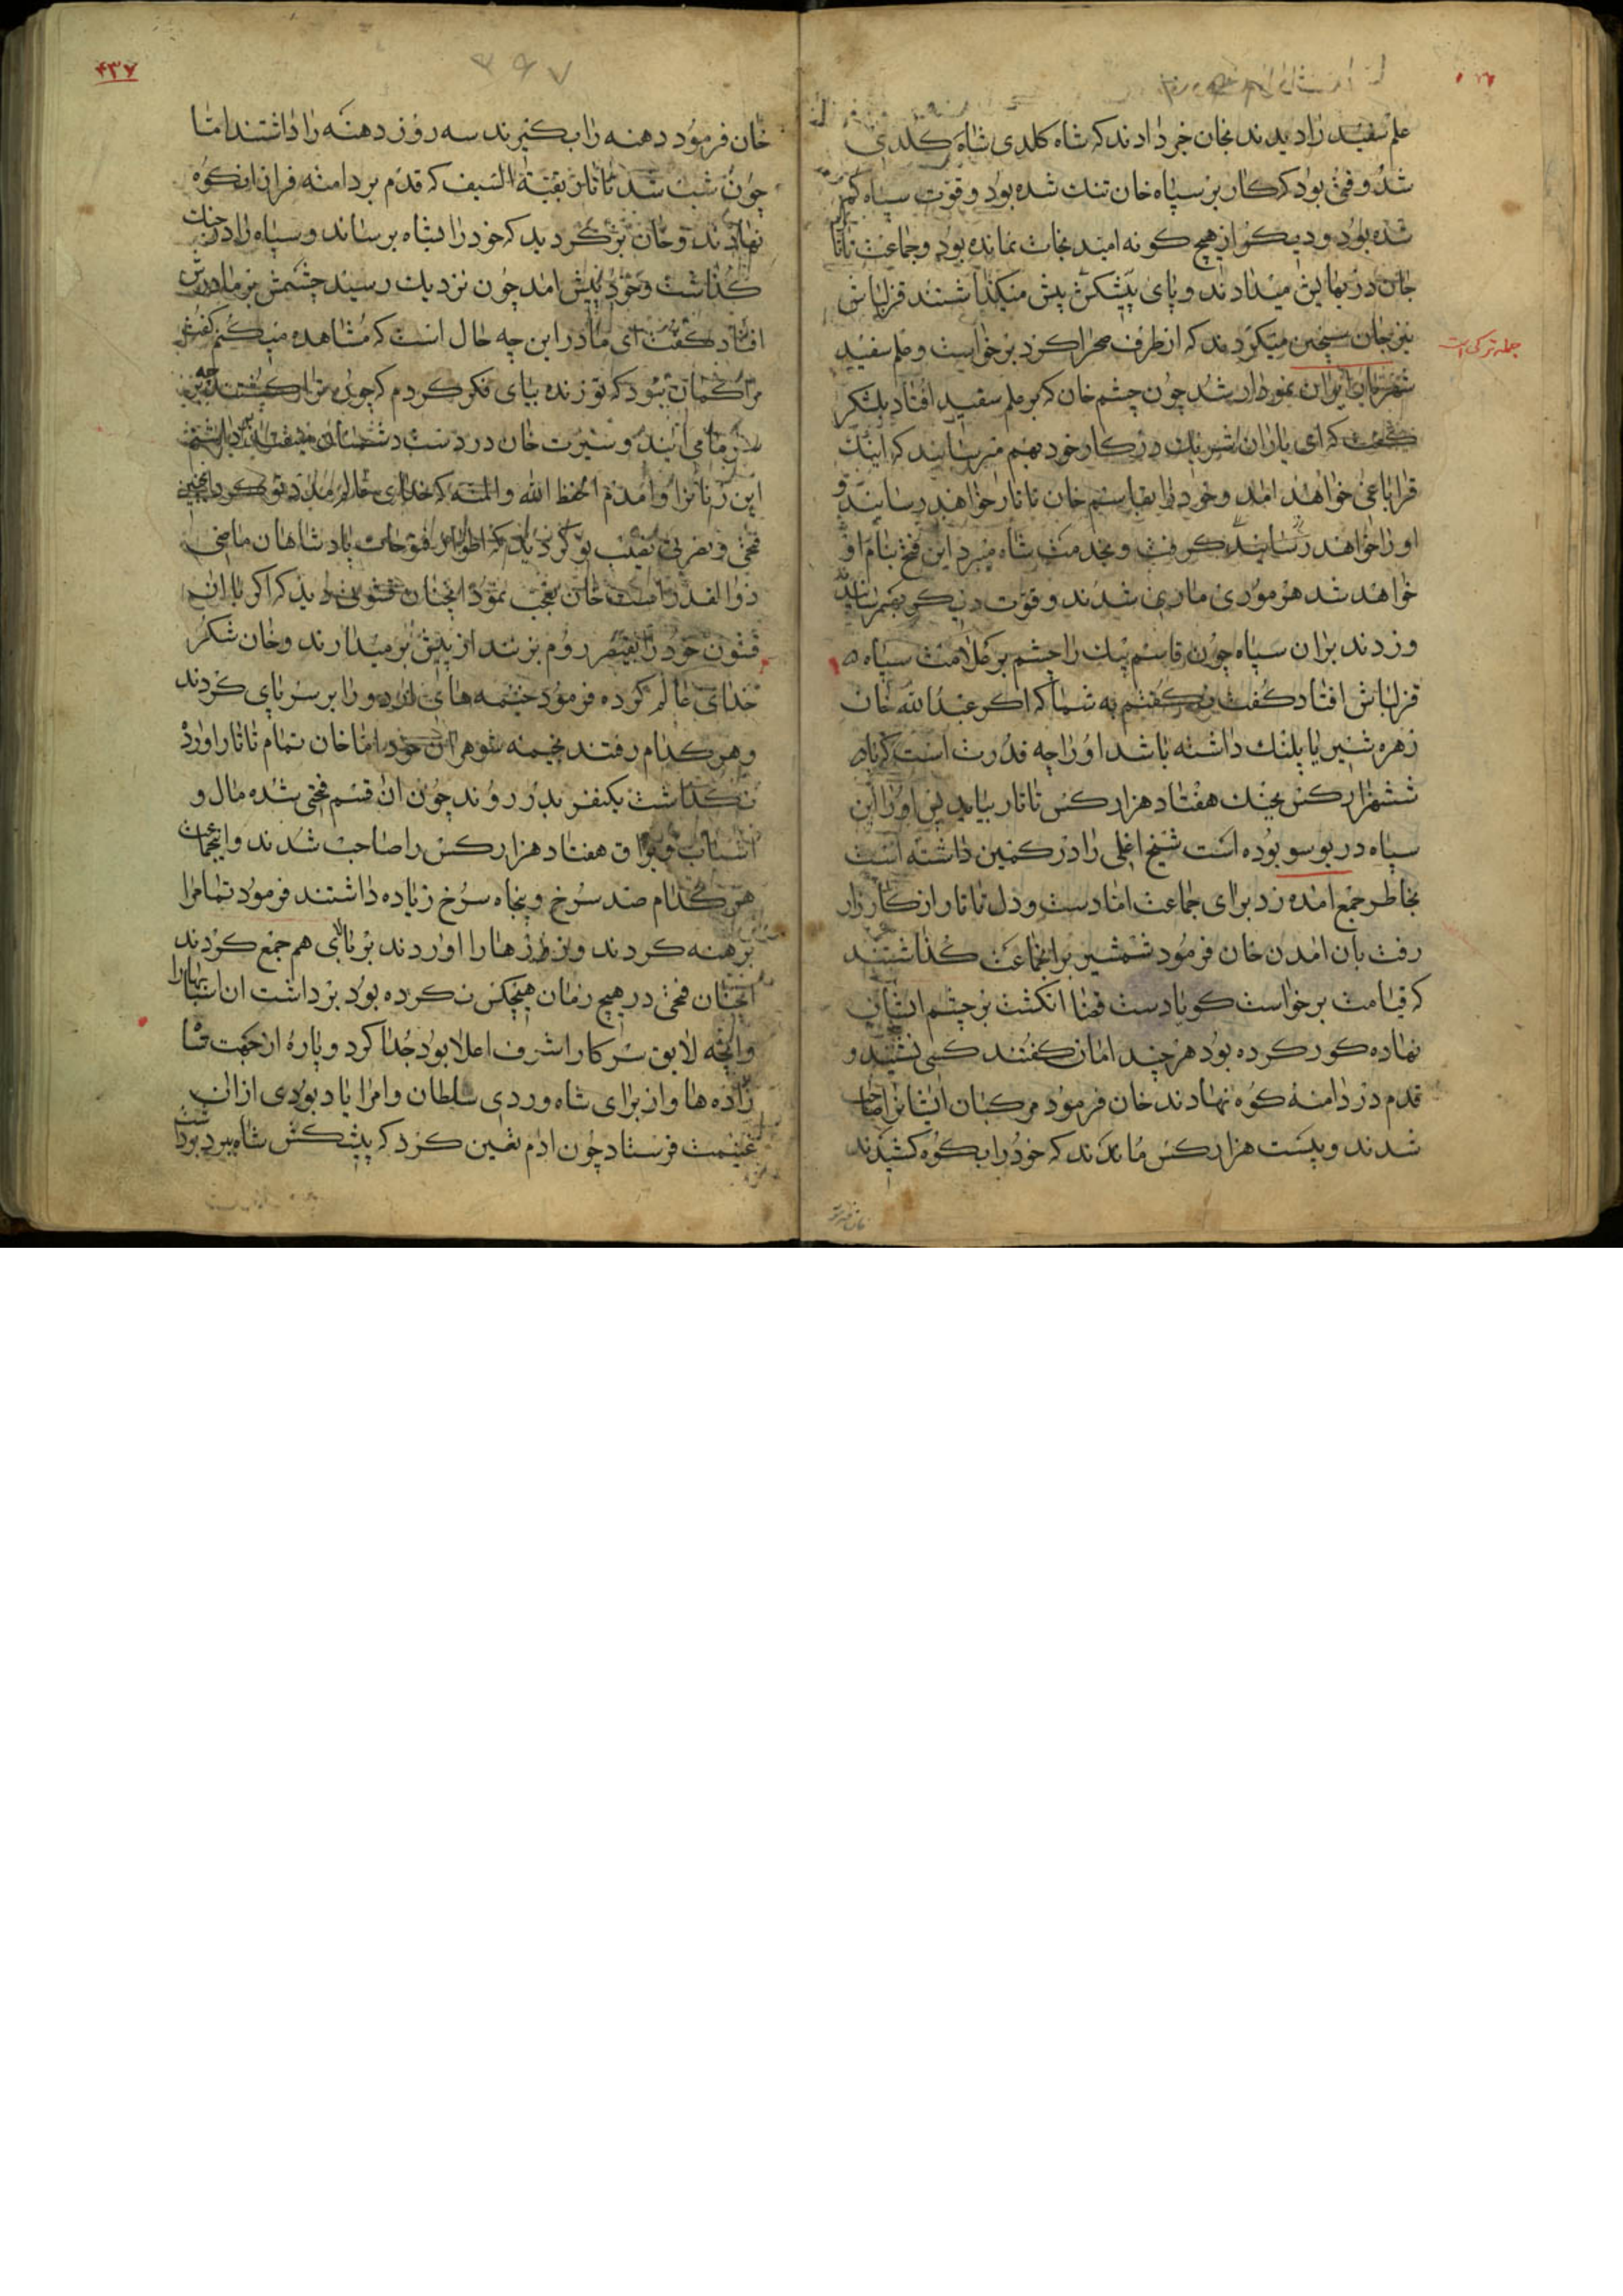 علم سفید را دیدند بخان خبر دادند که شاه کلدی شاه کلدی
شد و فتحی بود که کار بر سپاه خان تنک شده بود و قوت سپاه کم
شده بود و دیکر از هیچ کونه امید نجات نمانده بود و جماعت تاتار
جان در بها میدادند و پای پیشکش پیش میکذاشتند قزلباش
نیز جان میکردند که از طرف صحرا کرد برخواست و علم سفید
نمودار شد چون چشم خان که بر علم سفید افتاد بلشکر
کفت که ای یاران شریک در کار خود بهم میرسانند که اینک
خواهند امد و خود را بقاسم خان تاتار خواهند رسانید و
او را خواهند کرفت و بخدمت شاه میبرد این فتح بنام او
خواهد شد هر موری ماری شدند و قوت دیکر بهم رسانیدند
و زدند بران سپاه چون قاسم بیک را چشم بر علامت سپاه
قزلباش افتاد کفت کفتم به شما که اکر عبدالله خان
زهره شیر یا پلنک داشته باشد او را چه قدرت است که با
ششهزار کس بجنک هفتاد هزار کس تاتار بیاید پس او را این
سپاه در بوسو بوده است شیخ اغلی را در کمین داشته است
بخاطر جمع امده زد برای جماعت اما دست و دل تاتار از کارزار
رفت بان امدن خان فرمود شمشیر برانجماعت کذاشتند
که قیامت برخواست کویا دست قضا انکشت بر چشم ایشان
نهاده کور کرده بود هر چند امان کفتند کسی نشنید و
قدم در دامنه کوه نهادند خان فرمود مرکبان ایشانرا صاحب
شدند و بیست هزار کس ماندند که خود را بکوه کشیدند
جمله ترکی است
۴۳۷
۳۶۷
خان فرمود دهنه را بکیرند سه روز دهنه را داشتند اما
چون شب شد تاتار بقیة السیف که قدم بر دامنه فرار انکوه
نهادند و خان بر کردید که خود را بشاه برساند و سپاه را در جنک
کذاشت و خود پیش امد چون نزدیک رسید چشمش بر مادرش
افتاد کفت ای مادر این چه حال است که مشاهده میکنم کفت
مرا کمان نبود که تو زنده بیای فکر کردم که چون ترا کشتند
می ایند و سیرت خان در دست دشمنان
این زنانرا و امدم الحفظ الله و المنه که خدای عالم مدد تو کرد اینچنین
فتحی و نصرتی نصیب تو کردید که فتوحات پادشاهان ماضی
ذوالقدر است خان تعجب نمود انچنان قشونی دید که اکر با ان
قشون خود را بقیصر روم بزنند از پیش بر میدارند و خان شکر
خدای عالم کرده فرمود خیمه های اردو را بر سر پای کردند
و هر کدام رفتند بخیمه شوهران خود اما خان تمام تاتار اورد
نکذاشت یکنفر بدر روند چون ان قسم فتحی شده مال و
اسباب و یراق هفتاد هزار کس را صاحب شدند و انجماعت
هر کدام صد سرخ و پنجاه سرخ زیاده داشتند فرمود تمام را
برهنه کردند و زرها را اوردند بر بالای هم جمع کردند
انچنان فتحی در هیچ زمان هیچکس نکرده بود برداشت ان اسبابها را
و انچه لایق سرکار اشرف اعلا بود جدا کرد و پاره از جهت شا
زاده ها و از برای شاه وردی سلطان و امرا یاد بودی از ان
غنیمت فرستاد چون ادم تعین کرد که پیشکش شاه ببرد